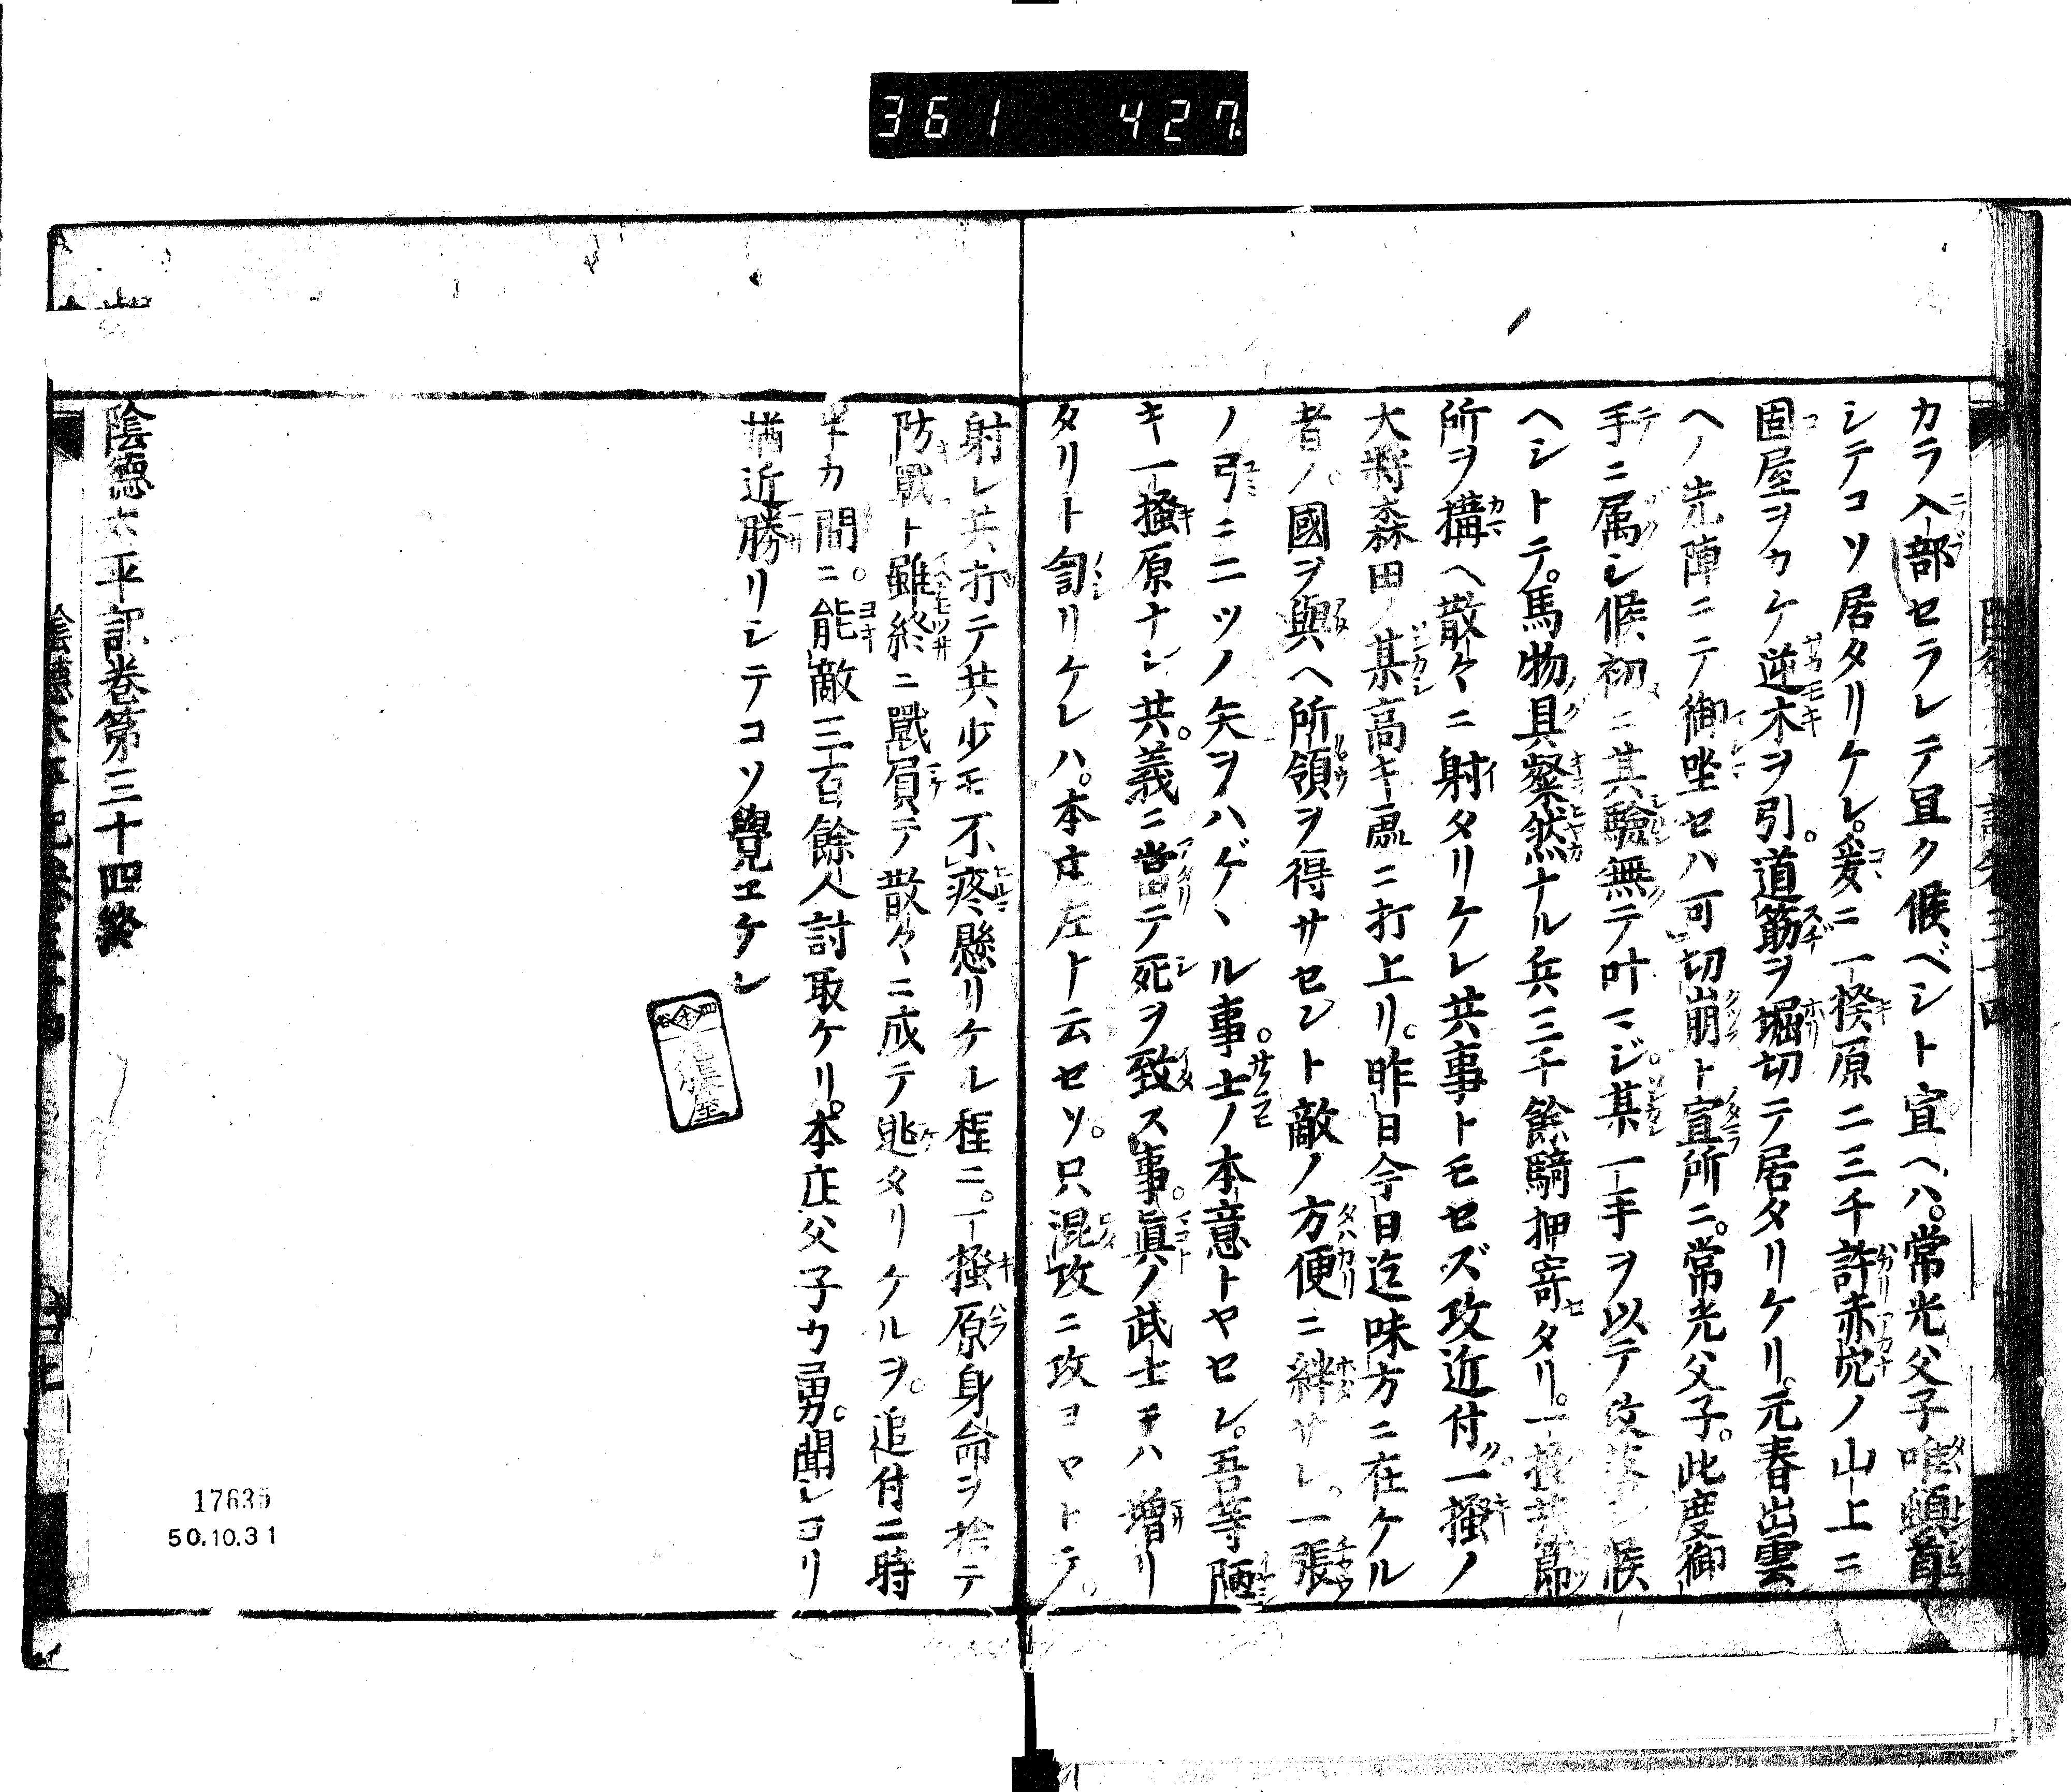 361 427
カラ入部セラレテ且ク候ベシト宣ヘハ。常光父子唯頓首
シテコソ居タリケレ。爰ニ一揆原二三千許赤穴ノ山上ニ
固屋ヲカケ逆木ヲ引。道筋ヲ堀切テ居タリケリ。元春出雲
ヘノ先陣ニテ御坐セハ可切崩ト宣所ニ。常光父子。此度御
手ニ属シ候初ニ其驗無テ叶マジ。某一手ヲ以テ攻落シ候
ヘシトテ。馬物具粲然ナル兵三千餘騎押寄タリ。一揆共節
所ヲ構ヘ散々ニ射タリケレ共事トモセズ攻近付ク。一揆ノ
大將森田ノ某高キ處ニ打上リ。昨日今日迄味方ニ在ケル
者ノ。國ヲ與ヘ所領ヲ得サセント敵ノ方便ニ絆サレ。一張
ノ弓ニ二ツノ矢ヲハゲヽル事。士ノ本意トヤセン。吾等陋
キ一揆原ナレ共。義ニ當テ死ヲ致ス事。眞ノ武士ヨリハ增リ
タリト訇リケレハ。本庄左ト云セソ。只混攻ニ攻ヨヤトテ。
射レ共打テ共少モ不疼懸リケル程ニ。一揆原身命ヲ捨テ
防戰ト雖終ニ戰負テ散々ニ成テ逃タリケルヲ。追付二時
半カ間ニ。能敵三百餘人討取ケリ。本庄父子カ勇。聞シヨリ
猶近勝リシテコソ覺エケレ
陰德太平記卷第三十四終
17635
50.10.31